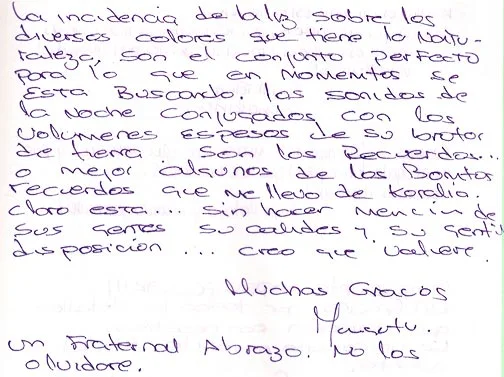 La incidencia de la luz sobre los
diversos colores que tiene la Natu-
raleza, son el conjunto perfecto
para lo que en momentos se
esta Buscando. los sonidos de
la Noche conjugados con los
volumenes espesos de su brotar
de tierra son los Recuerdos...
o mejor algunos de los Bonitos
recuerdos que me llevo de Koralia.
Claro esta... sin hacer mencin de
sus gentes su calides y su genti
disposición... creo que volvere.
Muchas Gracas
un Fraternal Abrazo. No los
olvidare.